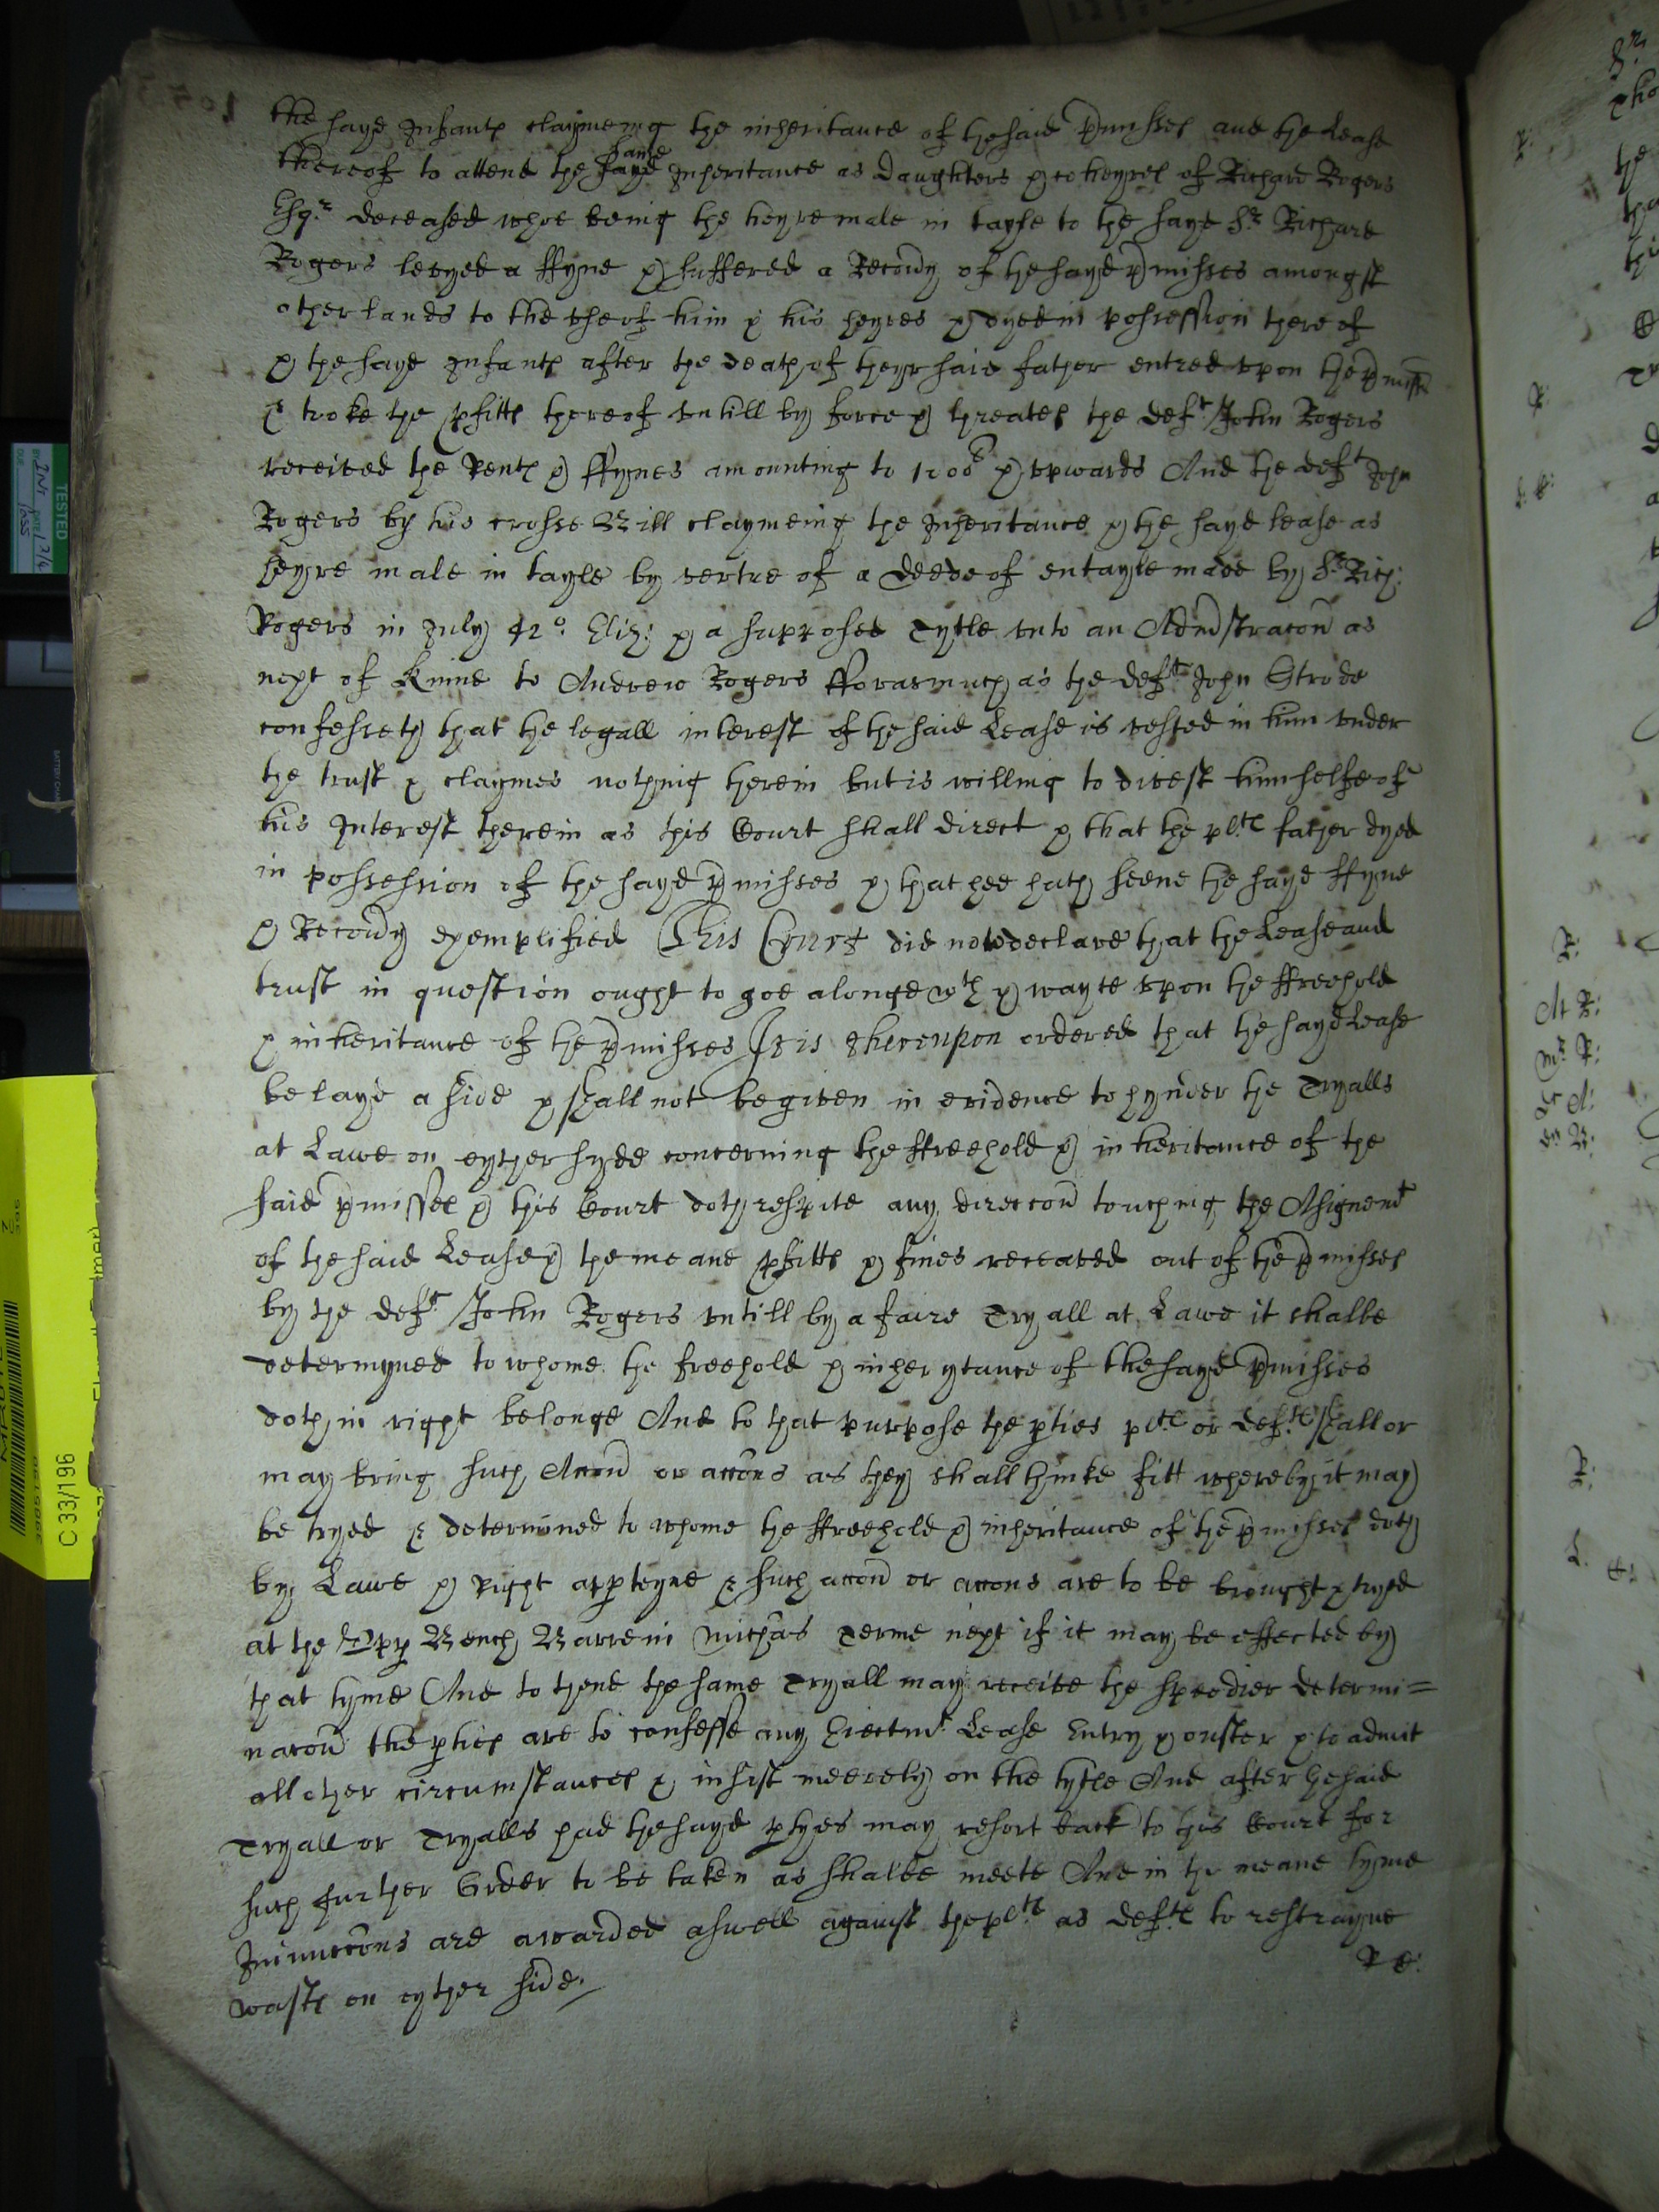 the sayd Infants claymeing the inheritance of the said pmisses and the Lease
thereof to attend the same Inheritance as daughters & coheyres of Richard Rogers
Esqr deceased whoe being the heyre male in tayle to the sayd Sr Richard
Rogers levyed a ffyne & suffered a Recovy of the sayd pmisses amongst
other lands to the use of him & his heyres & dyed in possession thereof
& the sayd Infants after the death of theyr said father entred upon the pmiss
& tooke the pfitts thereof untill by force & threates the deft John Rogers
received the Rents & ffynes amounting to 1000l & upwards And the deft John
Rogers by his crosse Bill claymeing the Inheritance & the sayd lease as
heyre male in tayle by vertue of a deede of entayle made by Sr Rich:
Rogers in July 42o: Eliz: & a supposed Tytle unto an Admstracon as
next of kinne to Andrew Rogers fforasmuch as the deft John Strode
confesseth that the legall interest of the said Lease is vested in him under
the trust & claymes nothing therein but is willing to divest himselfe of
his Interest therein as this Court shall direct & that the plts father dyed
in possession of the sayd pmisses & that hee hath seene the sayd ffyne
& Recovy exemplified This Court did now declare that the Lease and
trust in question ought to goe alonge wth & wayte upon the ffreehold
& inheritance of the pmisses It is thereupon ordered that the sayd Lease
be layd aside & shall not be given in evidence to hynder the Tryalls
at Lawe on eyther syde concerning the ffreehold & inheritance of the
said pmisses & this Court doth respite any direccon touching the Assignemt
of the said Lease & the meane pfitts & fines receaved out of the pmisses
by the deft John Rogers untill by a faire Tryall at Lawe it shalbe
determyned to whome the freehold & inherytance of the sayd pmisses
doth in right belonge And to that purpose the pties plts or defts shall or
may bring such Accon or accons as they shall thinke fitt whereby it may
be tryed & determined to whome the ffreehold & inheritance of the pmisses doth
by Lawe & Right apperteyne & such accon or accons are to be brought & tryed
at the Upp Bench Barre in Michas Terme next if it may be effected by
that tyme And to thend the same Tryall may receive the speedier determi=
nacon the pties are to confesse any Eiectmt Lease Entry & ouster & to admit
all other circumstances & insist meerely on the tytle And after the said
Tryall or Tryalls had the sayd ptyes may resort back to this Court for
such further Order to be taken as shalbe meete And in the meane tyme
Iniunccons are awarded aswell against the plts as defts to restrayne
wasts on eyther side.
C 33/196
TESTED